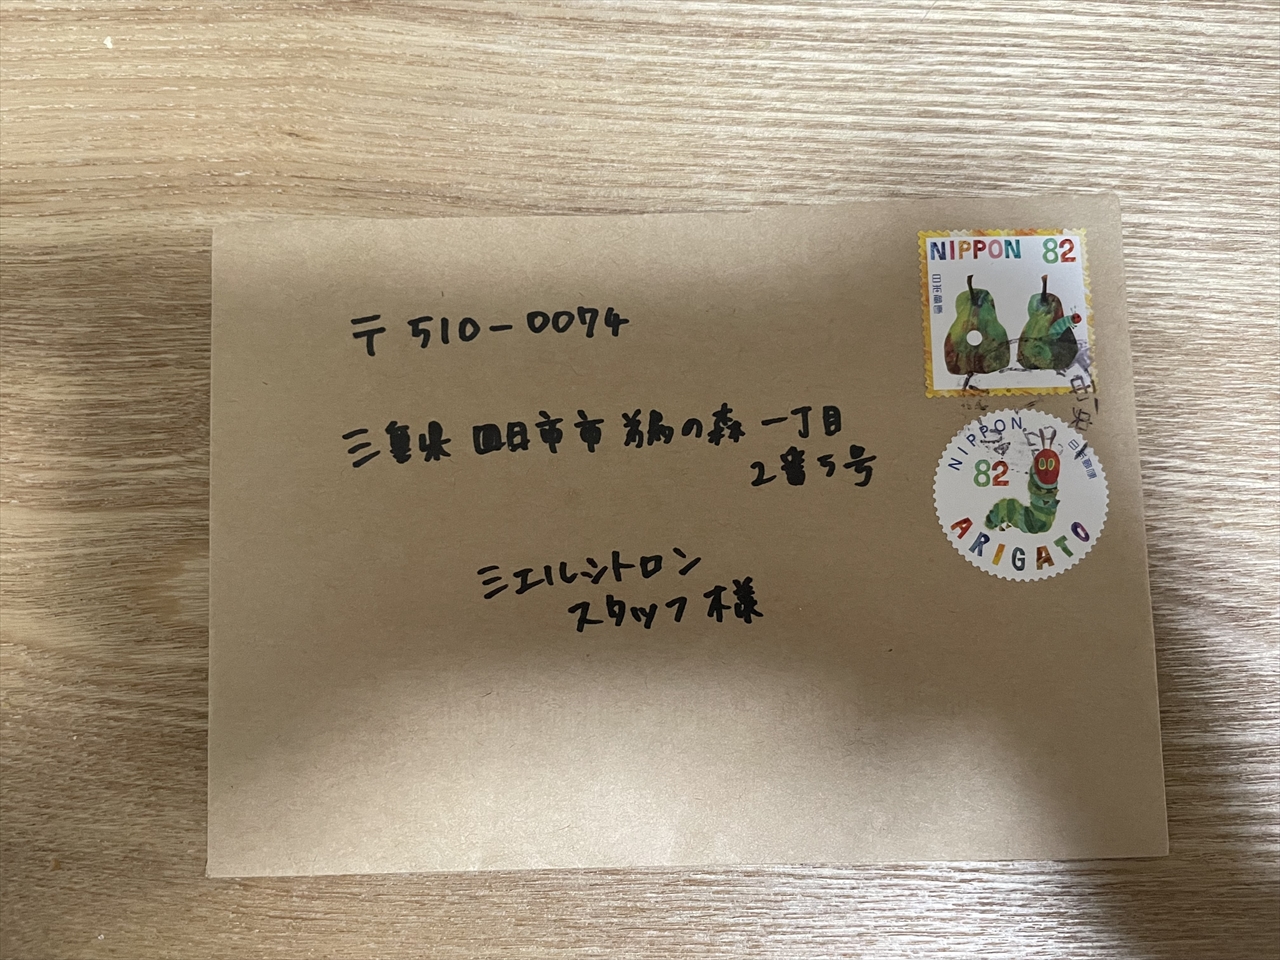 〒510-0074
三重県四日市市鵜の森一丁目
2番5号
ミエルシトロン
スタッフ様
NIPPON 82
日本郵便
NIPPON
日本郵便
82
ARIGATO
中央